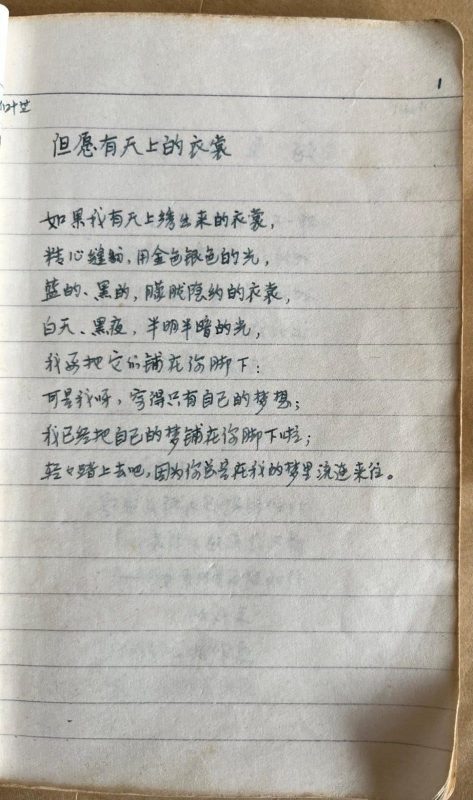 1
叶芝
但愿有天上的衣裳
如果我有天上绣出来的衣裳，
精心缝制，用金色银色的光，
蓝的、黑的，朦胧隐约的衣裳，
白天、黑夜，半明半暗的光，
我要把它们铺在你脚下：
可是我呀，穷得只有自己的梦想；
我已经把自己的梦铺在你脚下啦；
轻々踏上去吧，因为你总是在我的梦里流连来往。